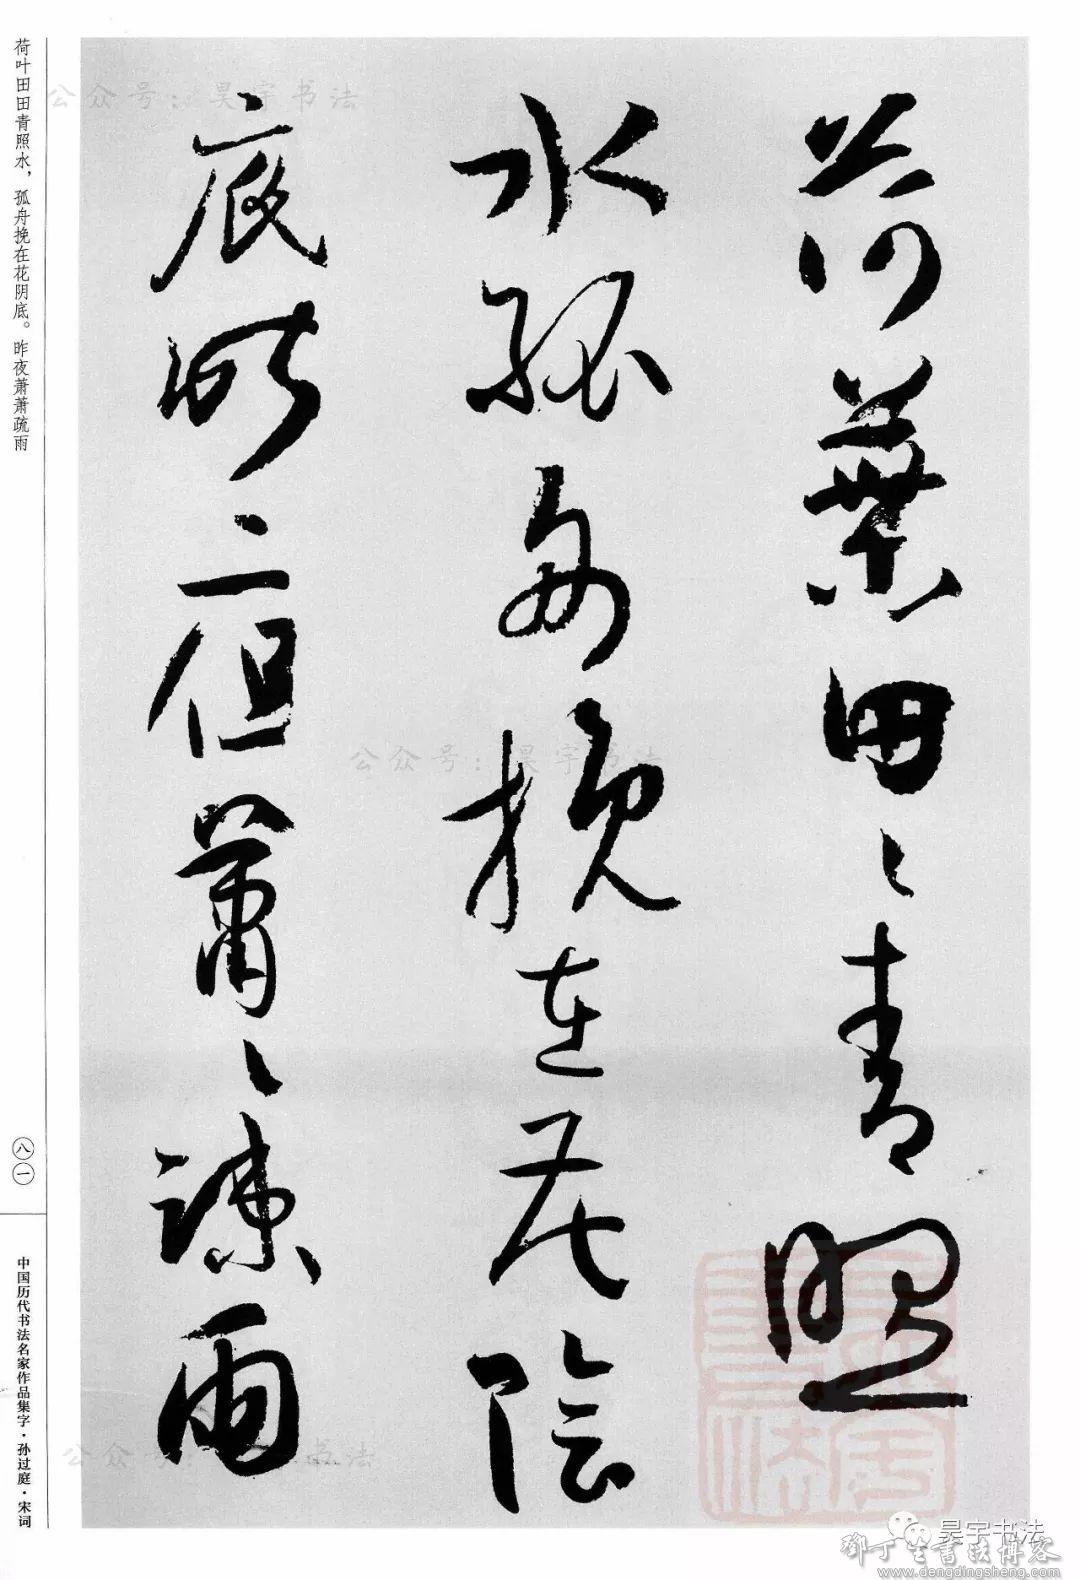 荷葉田〻青照
水孤舟挽在花陰
底昨夜蕭〻疎雨
荷叶田田青照水，孤舟挽在花阴底。昨夜萧萧疏雨
八一
中国历代书法名家作品集字·孙过庭·宋词
公众号：昊宇书法
公众号：昊宇书法
公众号：昊宇书法
昊宇书法
鄧丁生書法博客
www.dengdingsheng.com